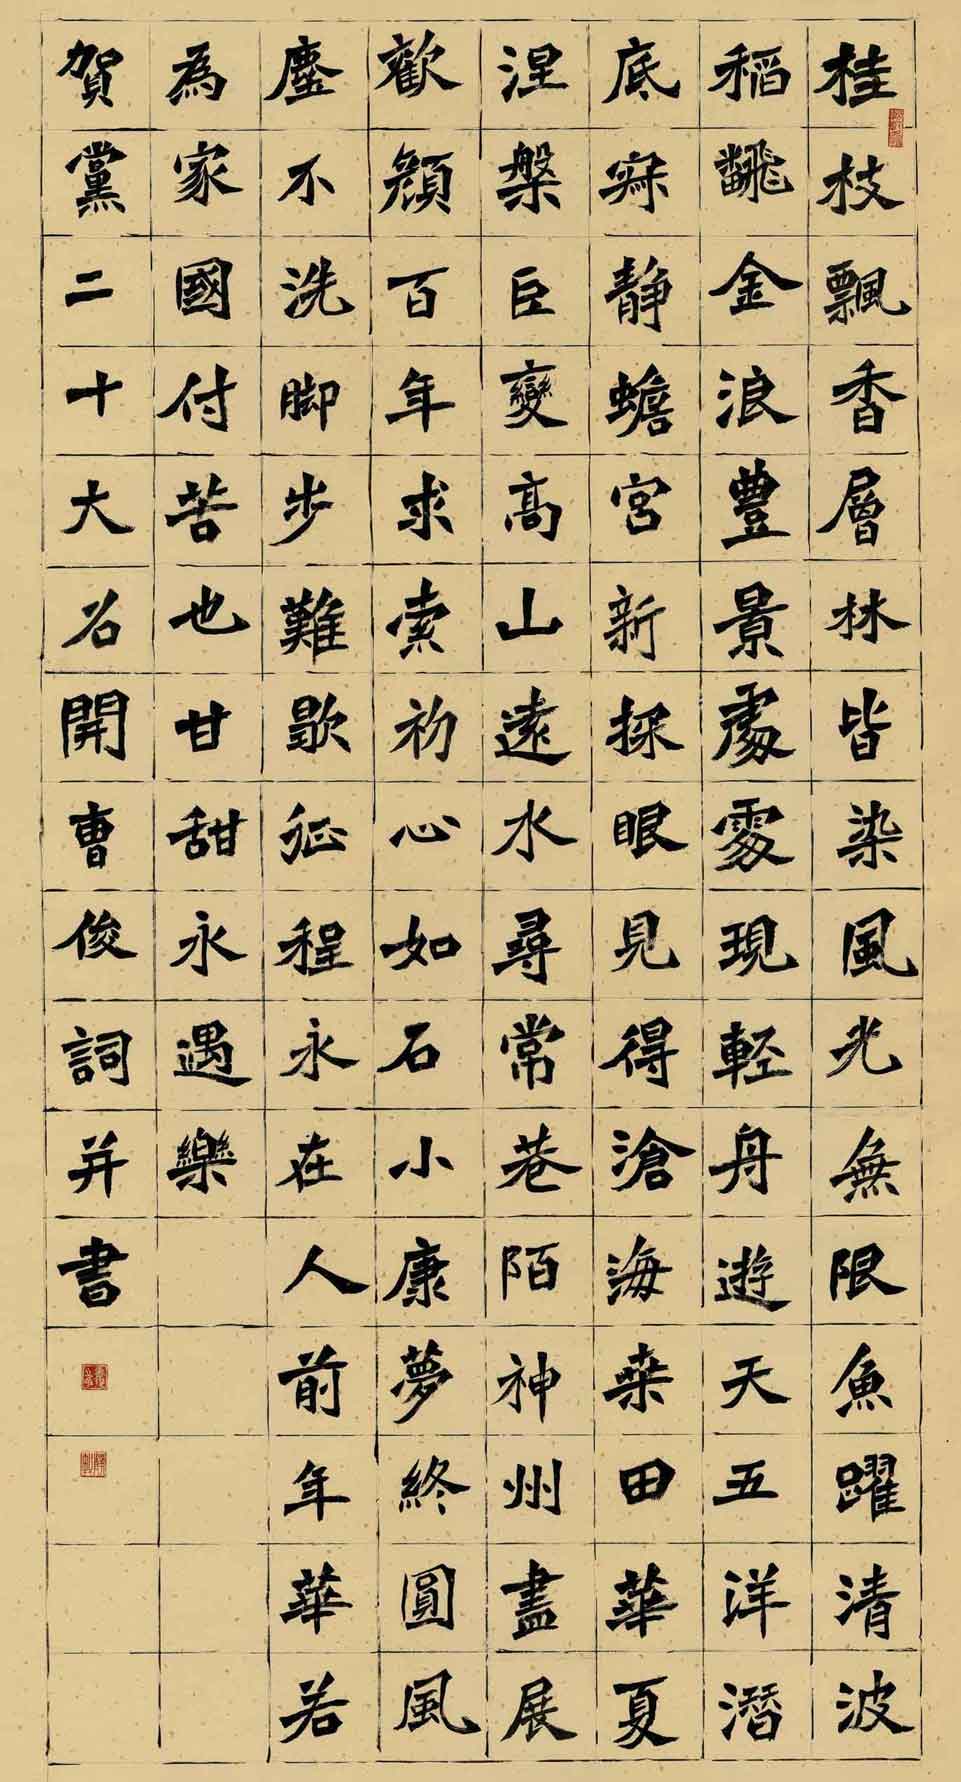 桂枝飄香層林皆染風光無限魚躍清波
稻飜金浪豊景處處現輕舟遊天五洋潛
底寂靜蟾宮新探眼見得滄海桒田華夏
涅槃巨變高山遠水尋常巷陌神州盡展
歡顔百年求索初心如石小康夢終圓風
塵不洗脚步難歇征程永在人前年華若
為家國付苦也甘甜永遇樂
賀黨二十大召開曹俊詞并書